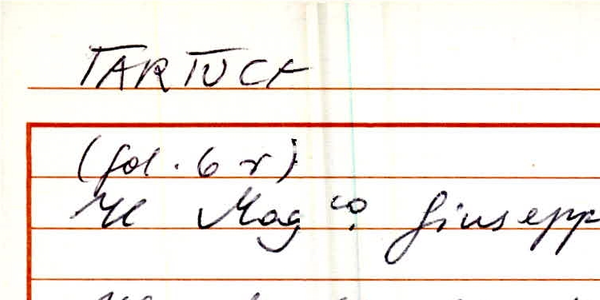 TARTUCA
(fol. 6 r)
Il Mag.co Giusepp